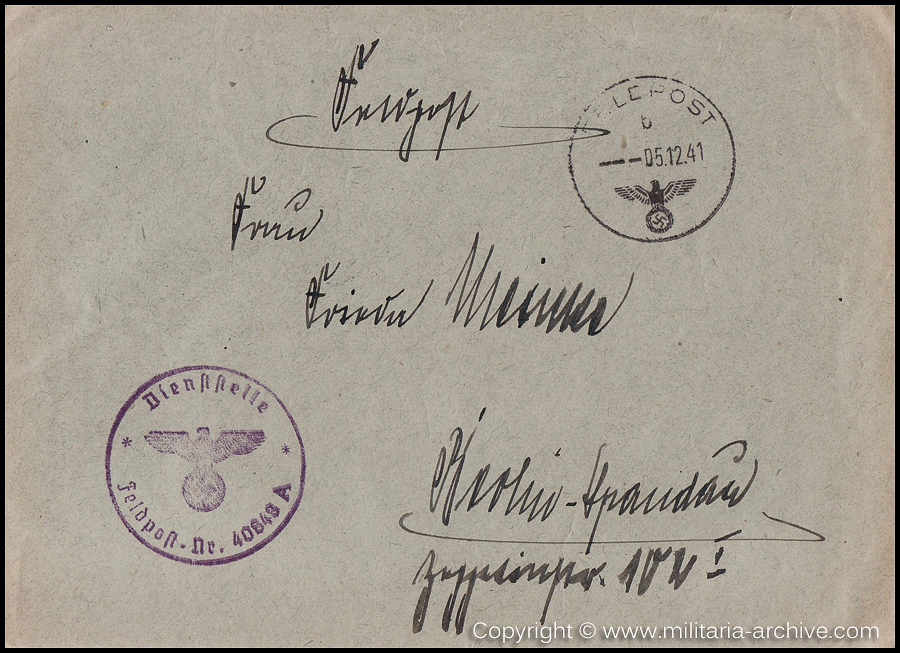 Feldpost
FELDPOST
b
---05.12.41
Frau
Frieda Meinke
Dienststelle
* *
Feldpost-Nr. 40843 A
Berlin-Spandau
Zeppelinstr. 102 I
Copyright © www.militaria-archive.com